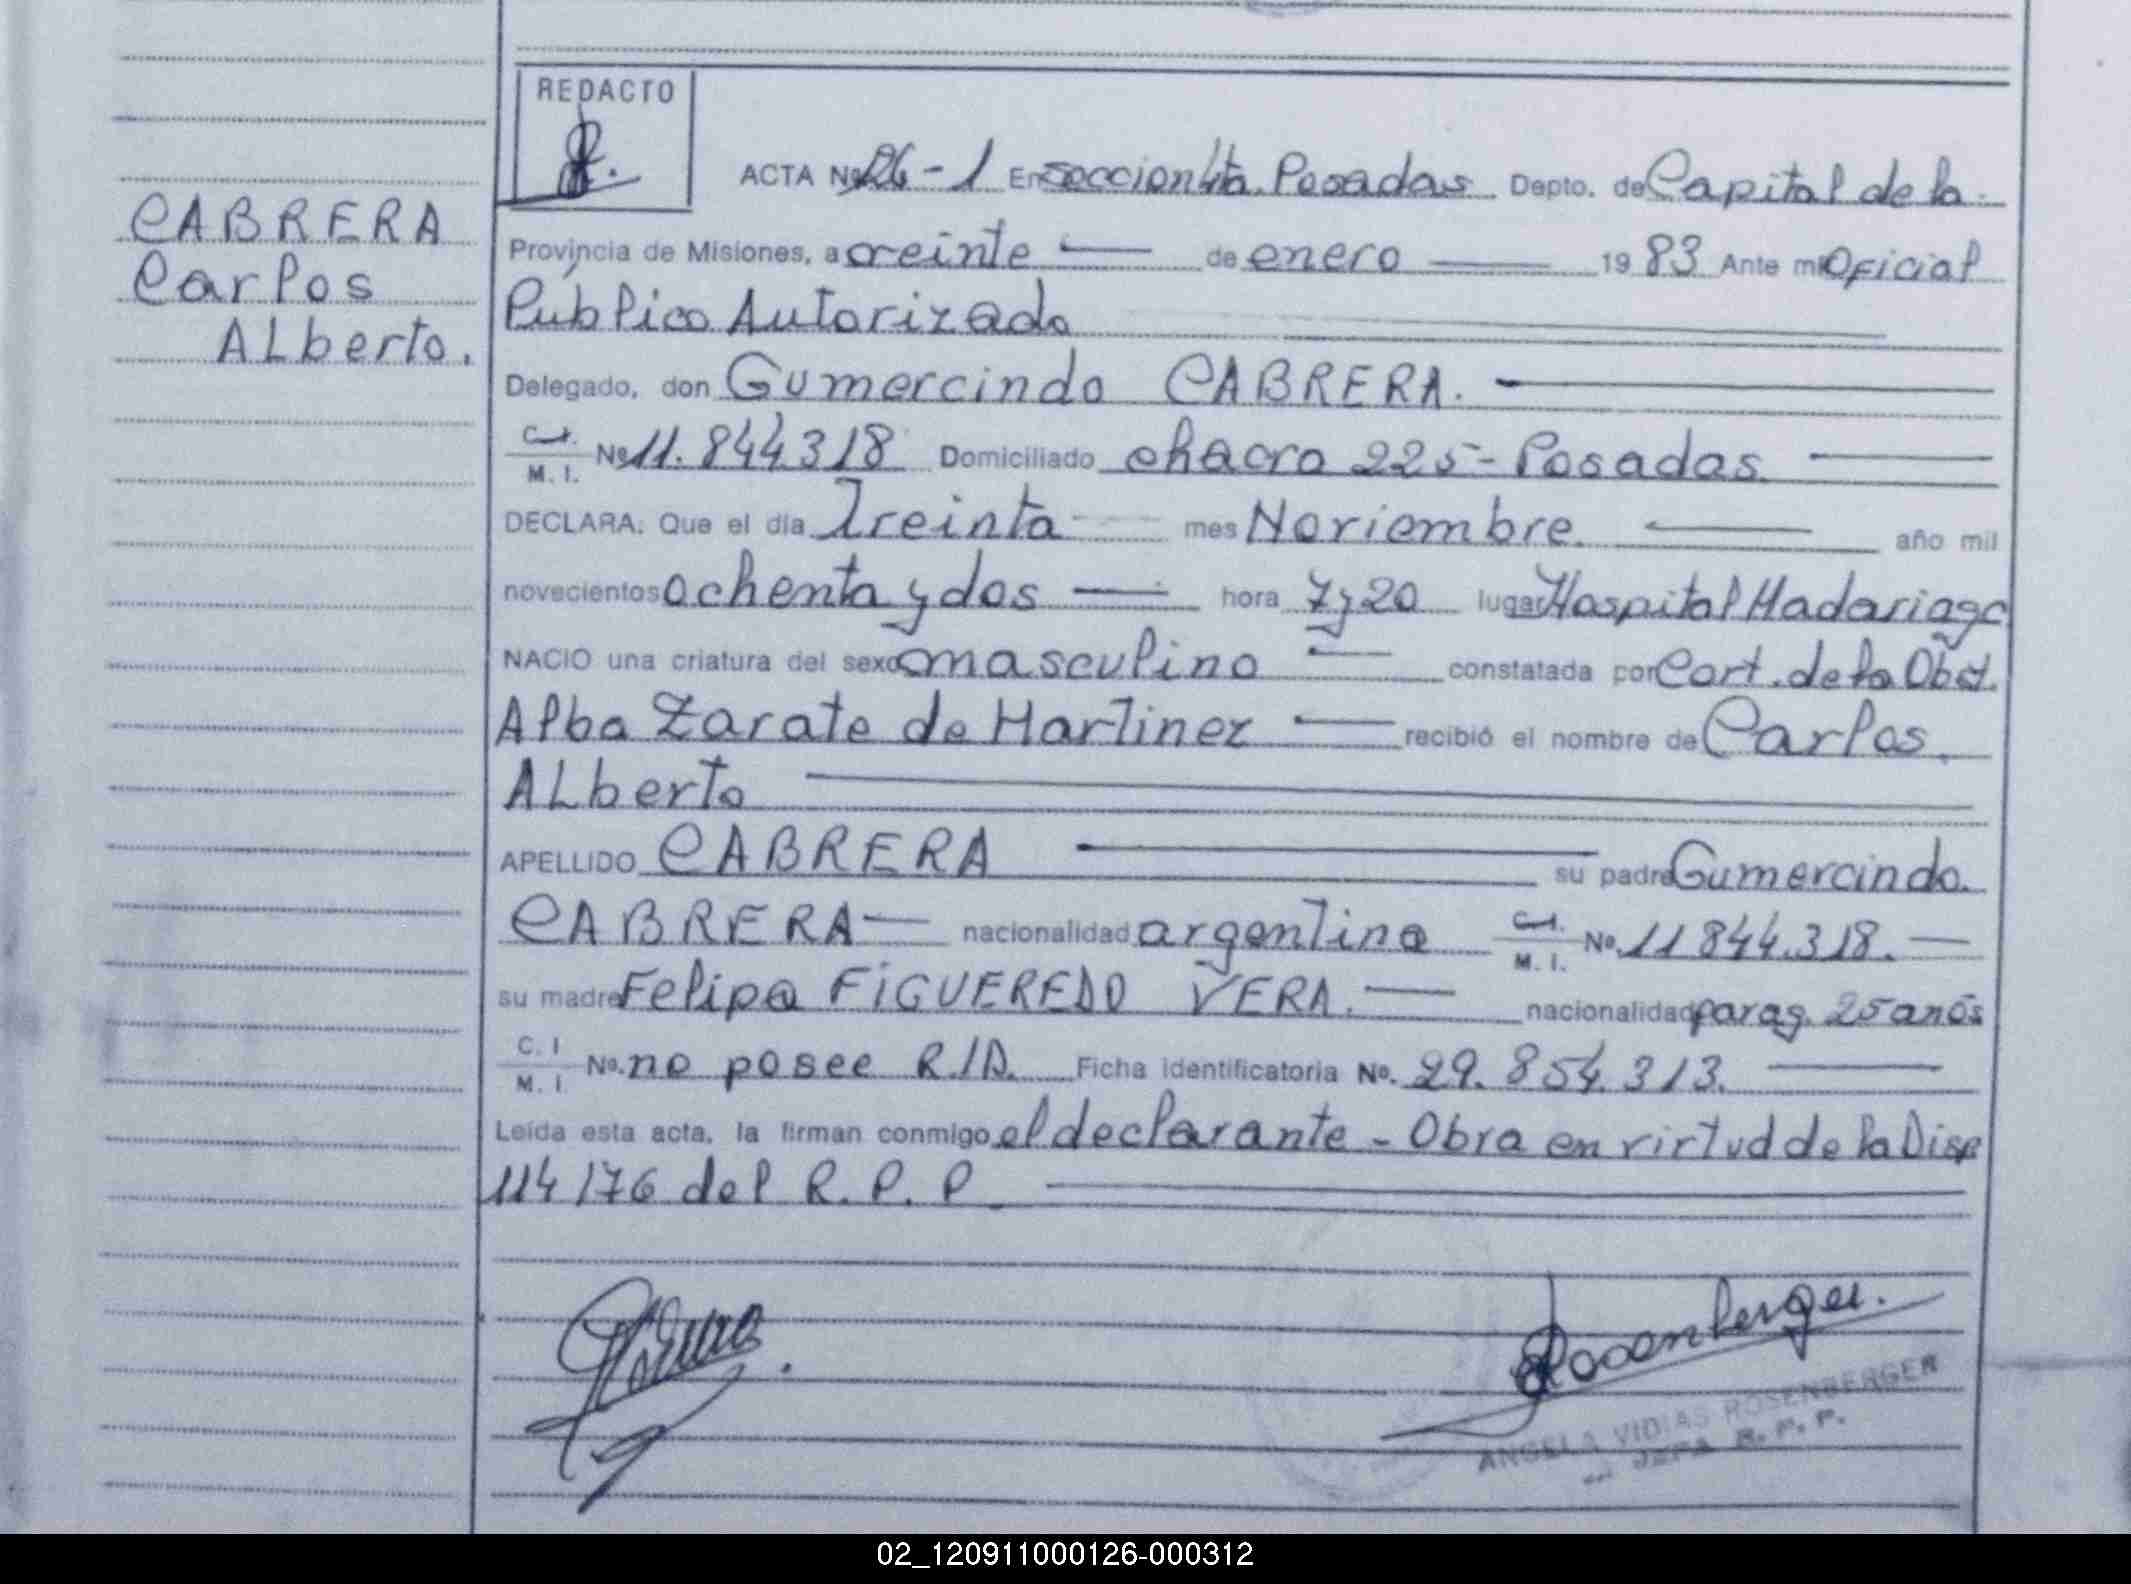 REDACTO
ACTA No 26-1 En seccion 4ta. Posadas Depto. de Capital de la
Provincia de Misiones, a veinte de enero 1983 Ante mi Oficial
Público Autorizado
Delegado, don Gumercindo CABRERA.
C.I. M. I. No 11.844.318 Domiciliado chacra 225 - Posadas.
DECLARA: Que el día Treinta mes Noviembre. año mil
novecientos ochenta y dos hora 7 y 20 lugar Hospital Madariaga
NACIO una criatura del sexo masculino constatada por Cert. de la Obst.
Alba Zarate de Martinez recibió el nombre de Carlos
Alberto
APELLIDO CABRERA su padre Gumercindo
CABRERA nacionalidad argentina C.I. M. I. No. 11844.318.
su madre Felipa FIGUEREDO VERA. nacionalidad parag. 25 años
C. I M. I. No. no posee R./D. Ficha identificatoria No. 29.854.313.
Leída esta acta, la firman conmigo el declarante - Obra en virtud de la Disp
114/76 del R. P. P
CABRERA
Carlos
Alberto.
Rosenberger.
ANGELA VIDIAS ROSENBERGER
JEFA R. P. P.
02_120911000126-000312